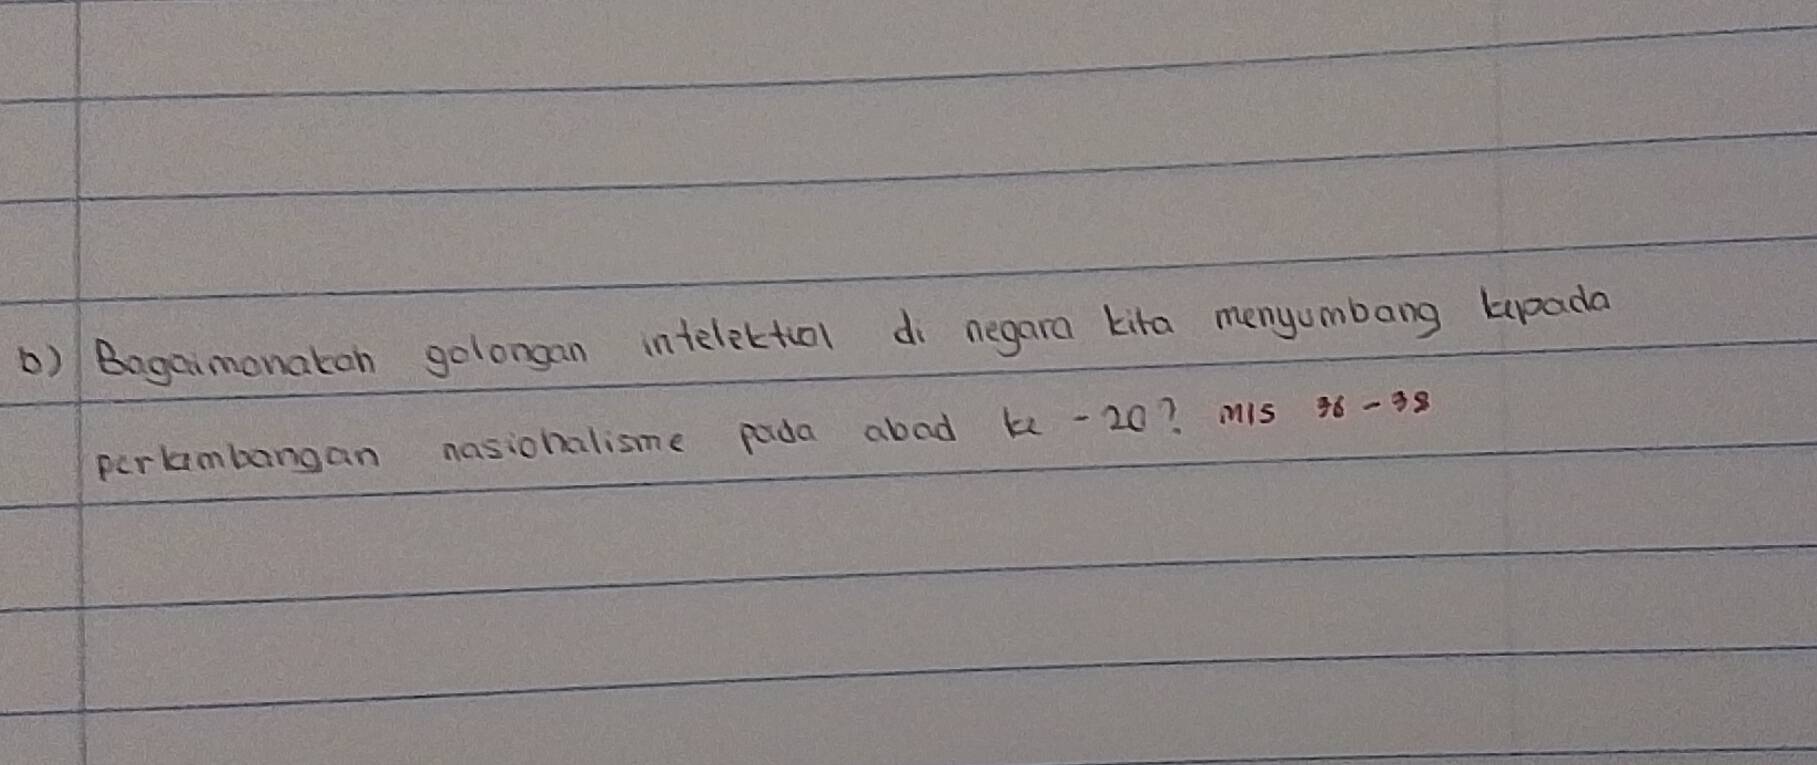 b) Bagaimanakah golongan intelektual di negara kita menyumbang kepada
perkembangan nasionalisme pada abad ke-20? m/s 36-38